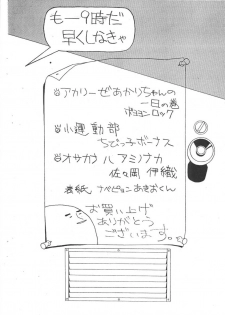 もー9時だ
早くしなきゃ
アカリーゼあかりちゃんの
一日の巻
ポヨヨンロック
小運動部
ちびっ子ボーナス
オサカナハアミノナカ
佐々岡 伊織
表紙 ナペヨンあきおくん
お買い上げ
ありがとう
ございます。